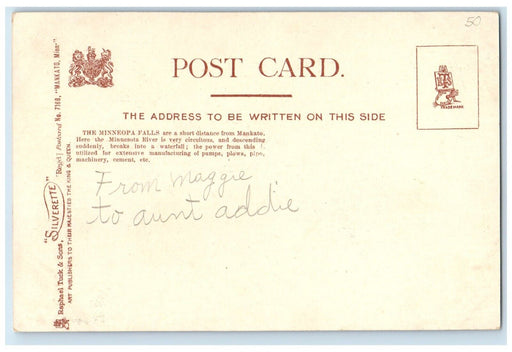 50
POST CARD.
THE ADDRESS TO BE WRITTEN ON THIS SIDE
THE MINNEOPA FALLS are a short distance from Mankato.
Here the Minnesota River is very circuitous, and descending
suddenly, breaks into a waterfall; the power from this is
utilized for extensive manufacturing of pumps, plows, pipe,
machinery, cement, etc.
From maggie
to aunt addie
TRADEMARK
"SILVERETTE" "Royal" Postcard No. 7160, "MANKATO, Minn"
Raphael Tuck & Sons,
ART PUBLISHERS TO THEIR MAJESTIES THE KING & QUEEN.